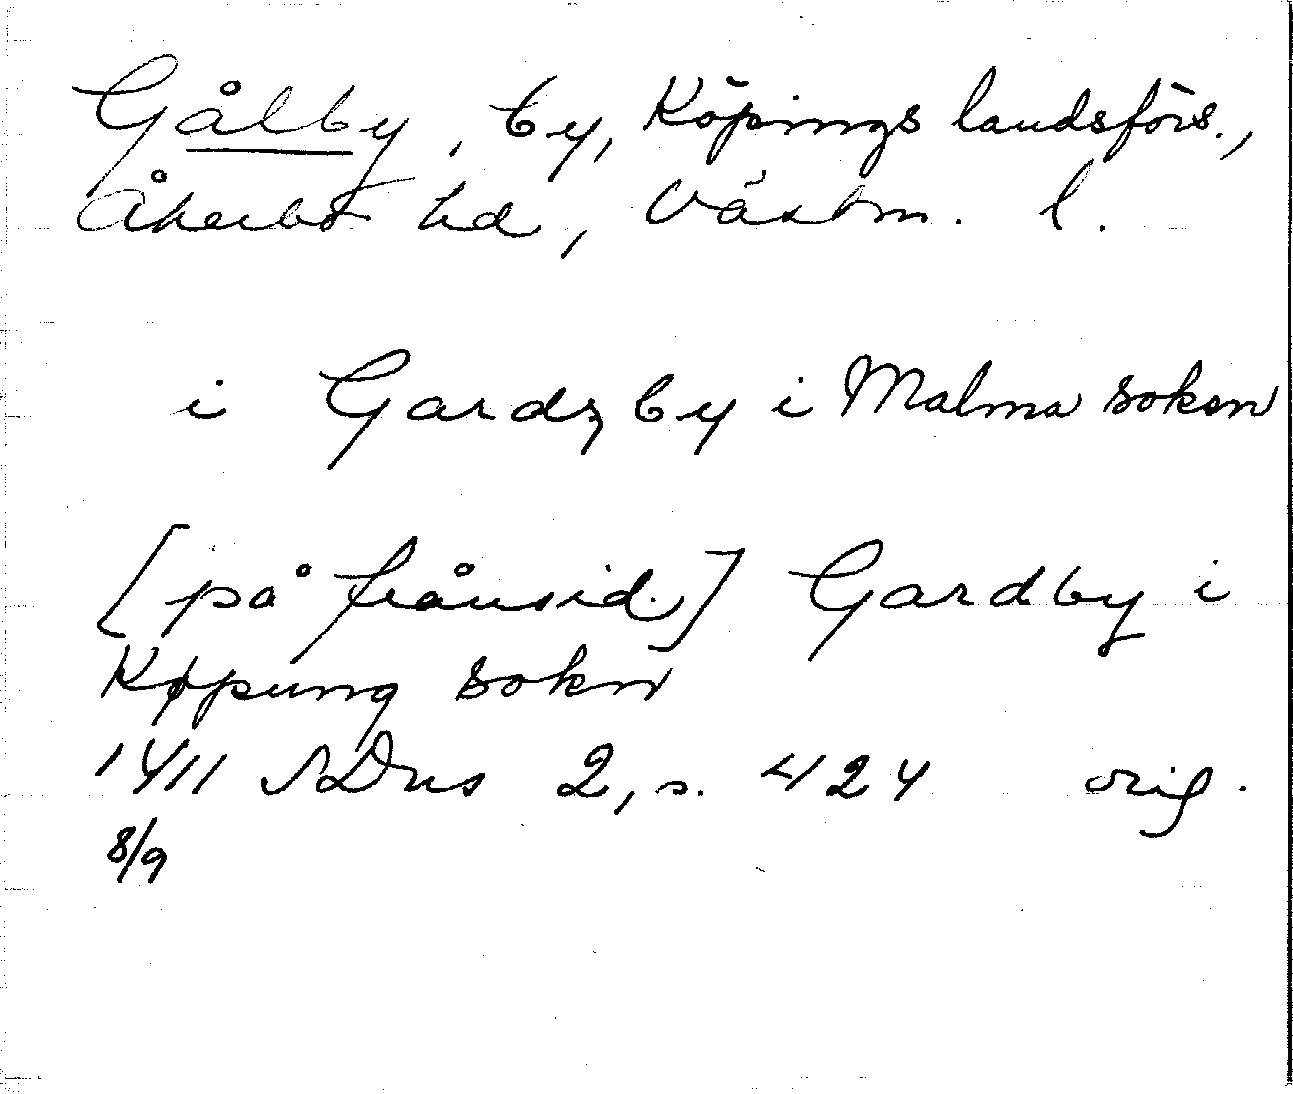 Gålby, by, Köpings landsförs.,
Åkerbo hd, Västm. l.
i Gardzby i Malma soken
[på frånsid.] Gardby i
Køpung sokn
1411 SDns 2, s. 424 orig.
8/9